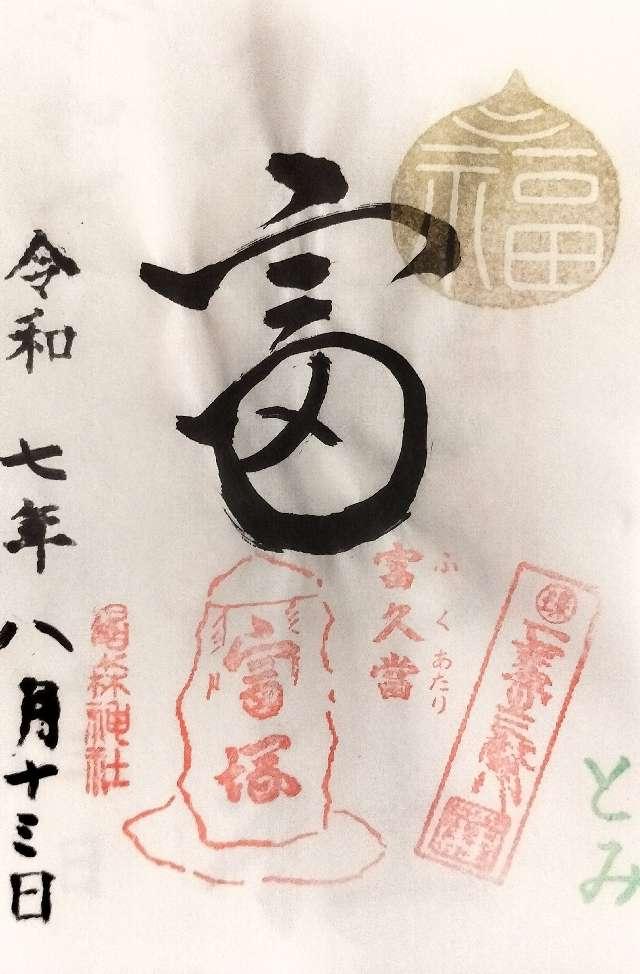 福
とみ
富久當
ふくあたり
富
富塚
椙森神社
令和七年八月十三日